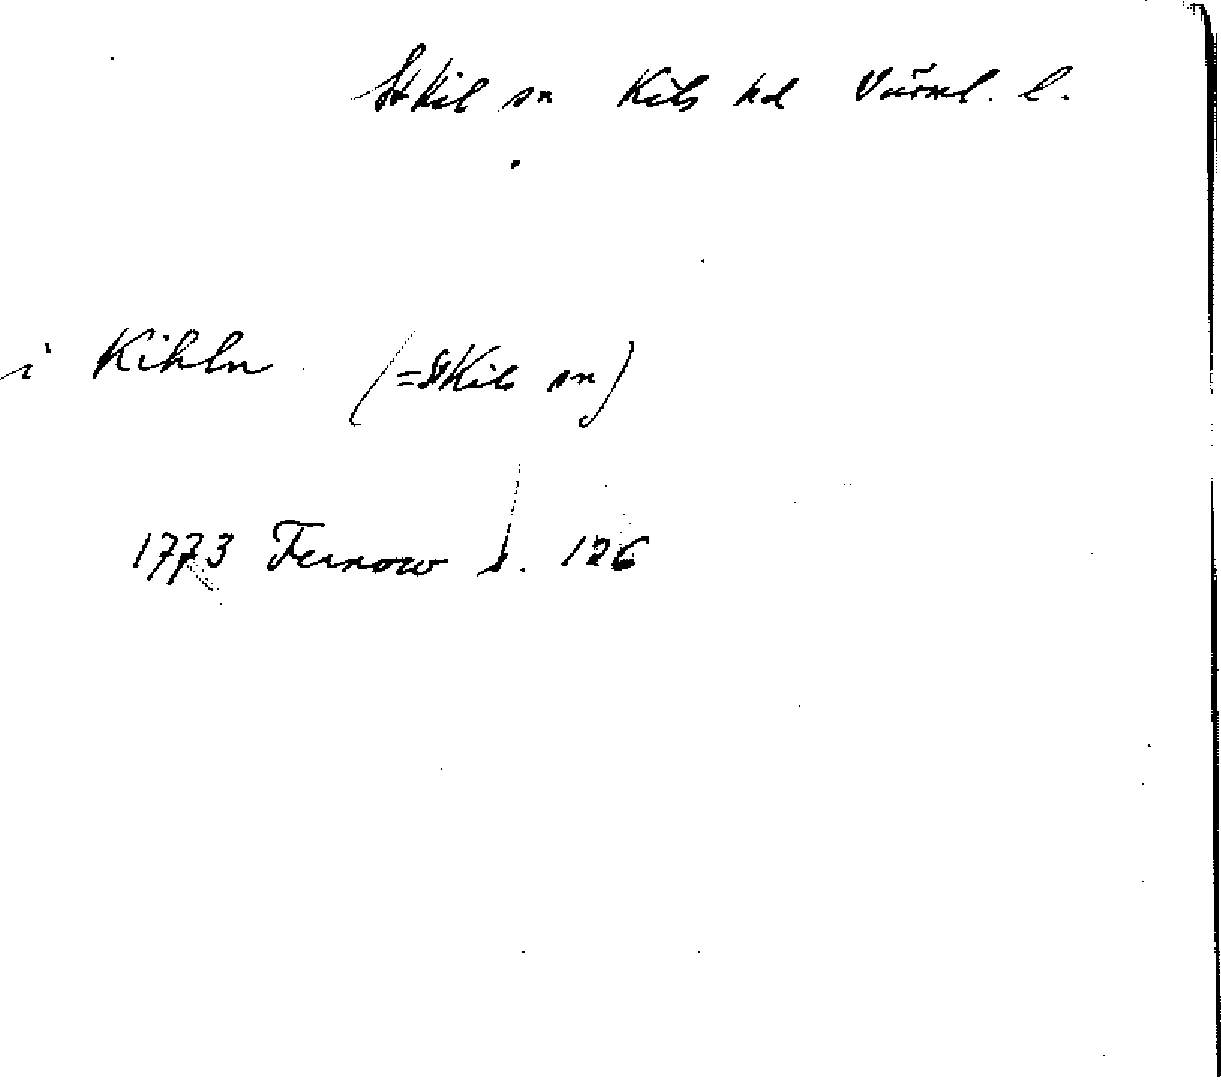 St Kil sn Kils hd Värml. l.
i Kihln (= St Kils sn)
1773 Fernow s. 126